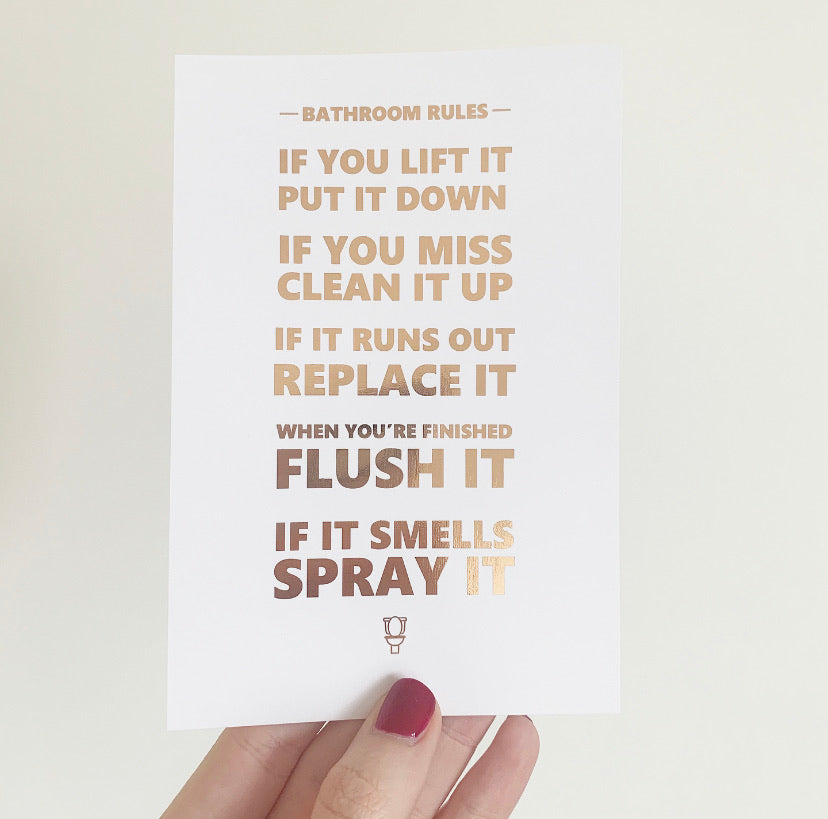 — BATHROOM RULES —
IF YOU LIFT IT
PUT IT DOWN
IF YOU MISS
CLEAN IT UP
IF IT RUNS OUT
REPLACE IT
WHEN YOU'RE FINISHED
FLUSH IT
IF IT SMELLS
SPRAY IT